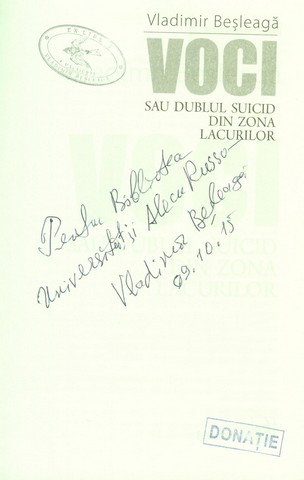 Vladimir Beșleagă
VOCI
SAU DUBLUL SUICID
DIN ZONA
LACURILOR
Pentru Biblioteca
Universității Alecu Russo
Vladimir Beșleagă
09.10.15
DONAȚIE